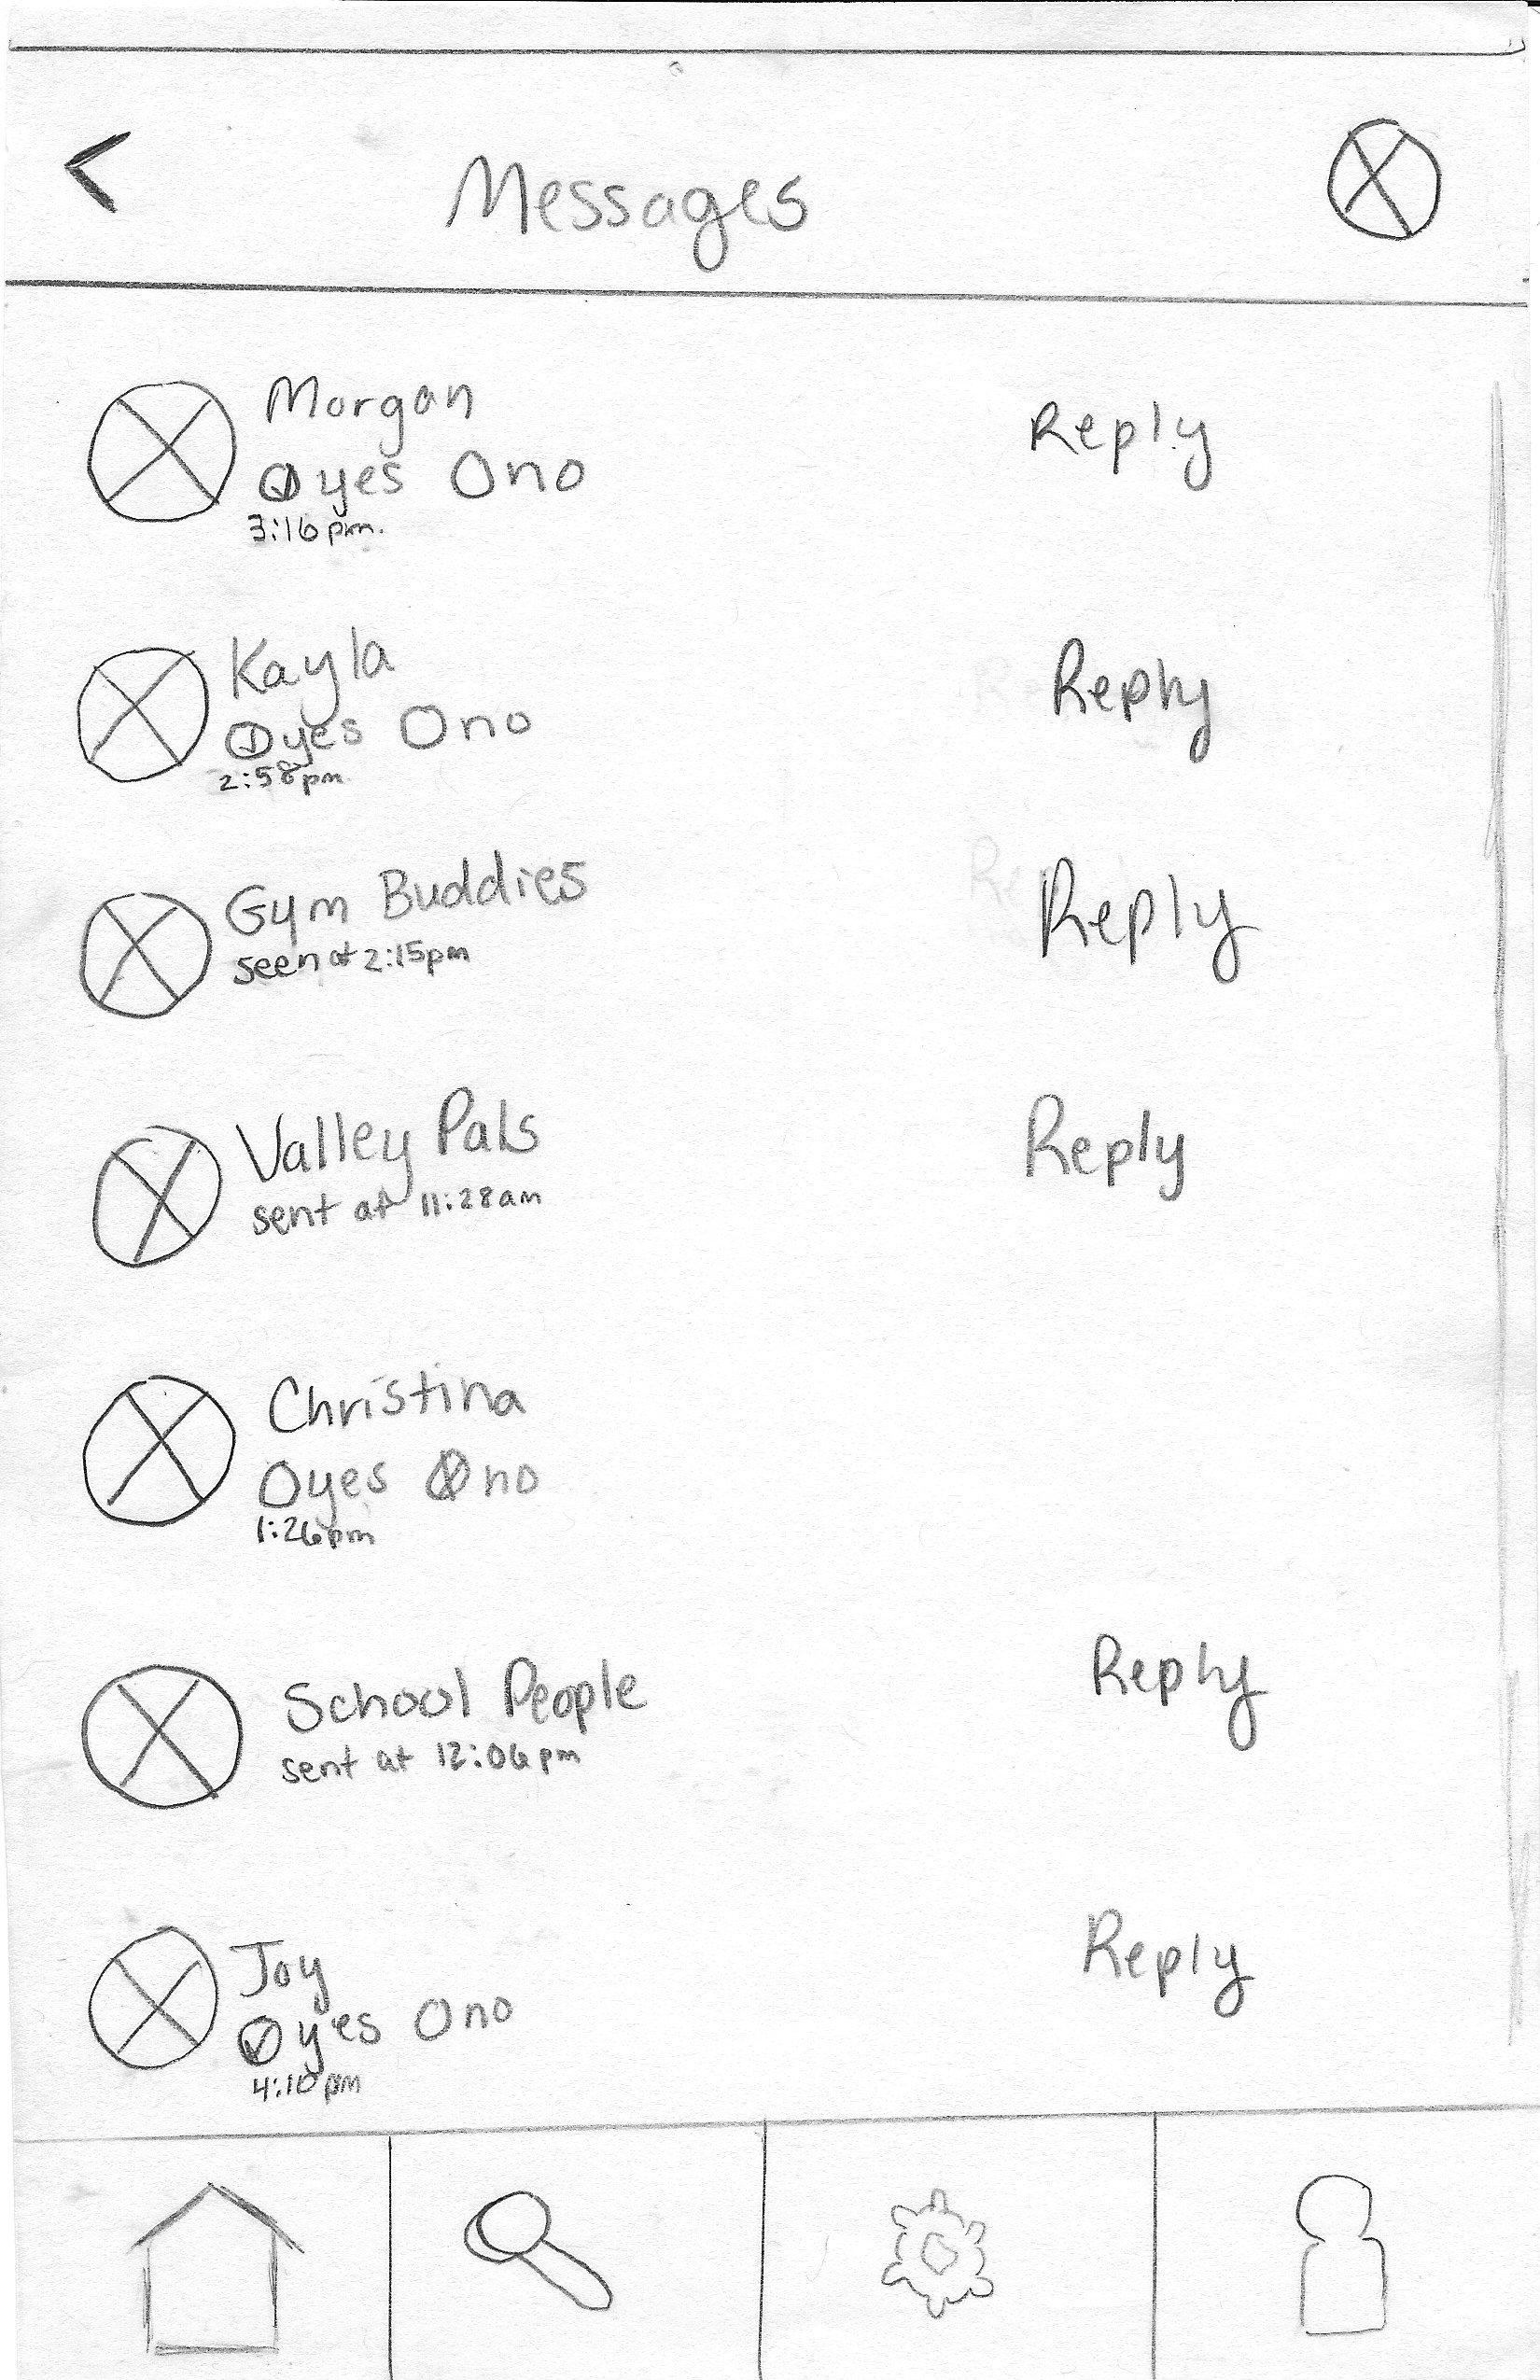 Messages
Morgan Reply
yes no
3:16pm.
Kayla Reply
yes no
2:58pm
Gym Buddies Reply
seen at 2:15pm
Valley Pals Reply
sent at 11:28am
Christina
yes no
1:26pm
School People Reply
sent at 12:06pm
Joy Reply
yes no
4:10pm